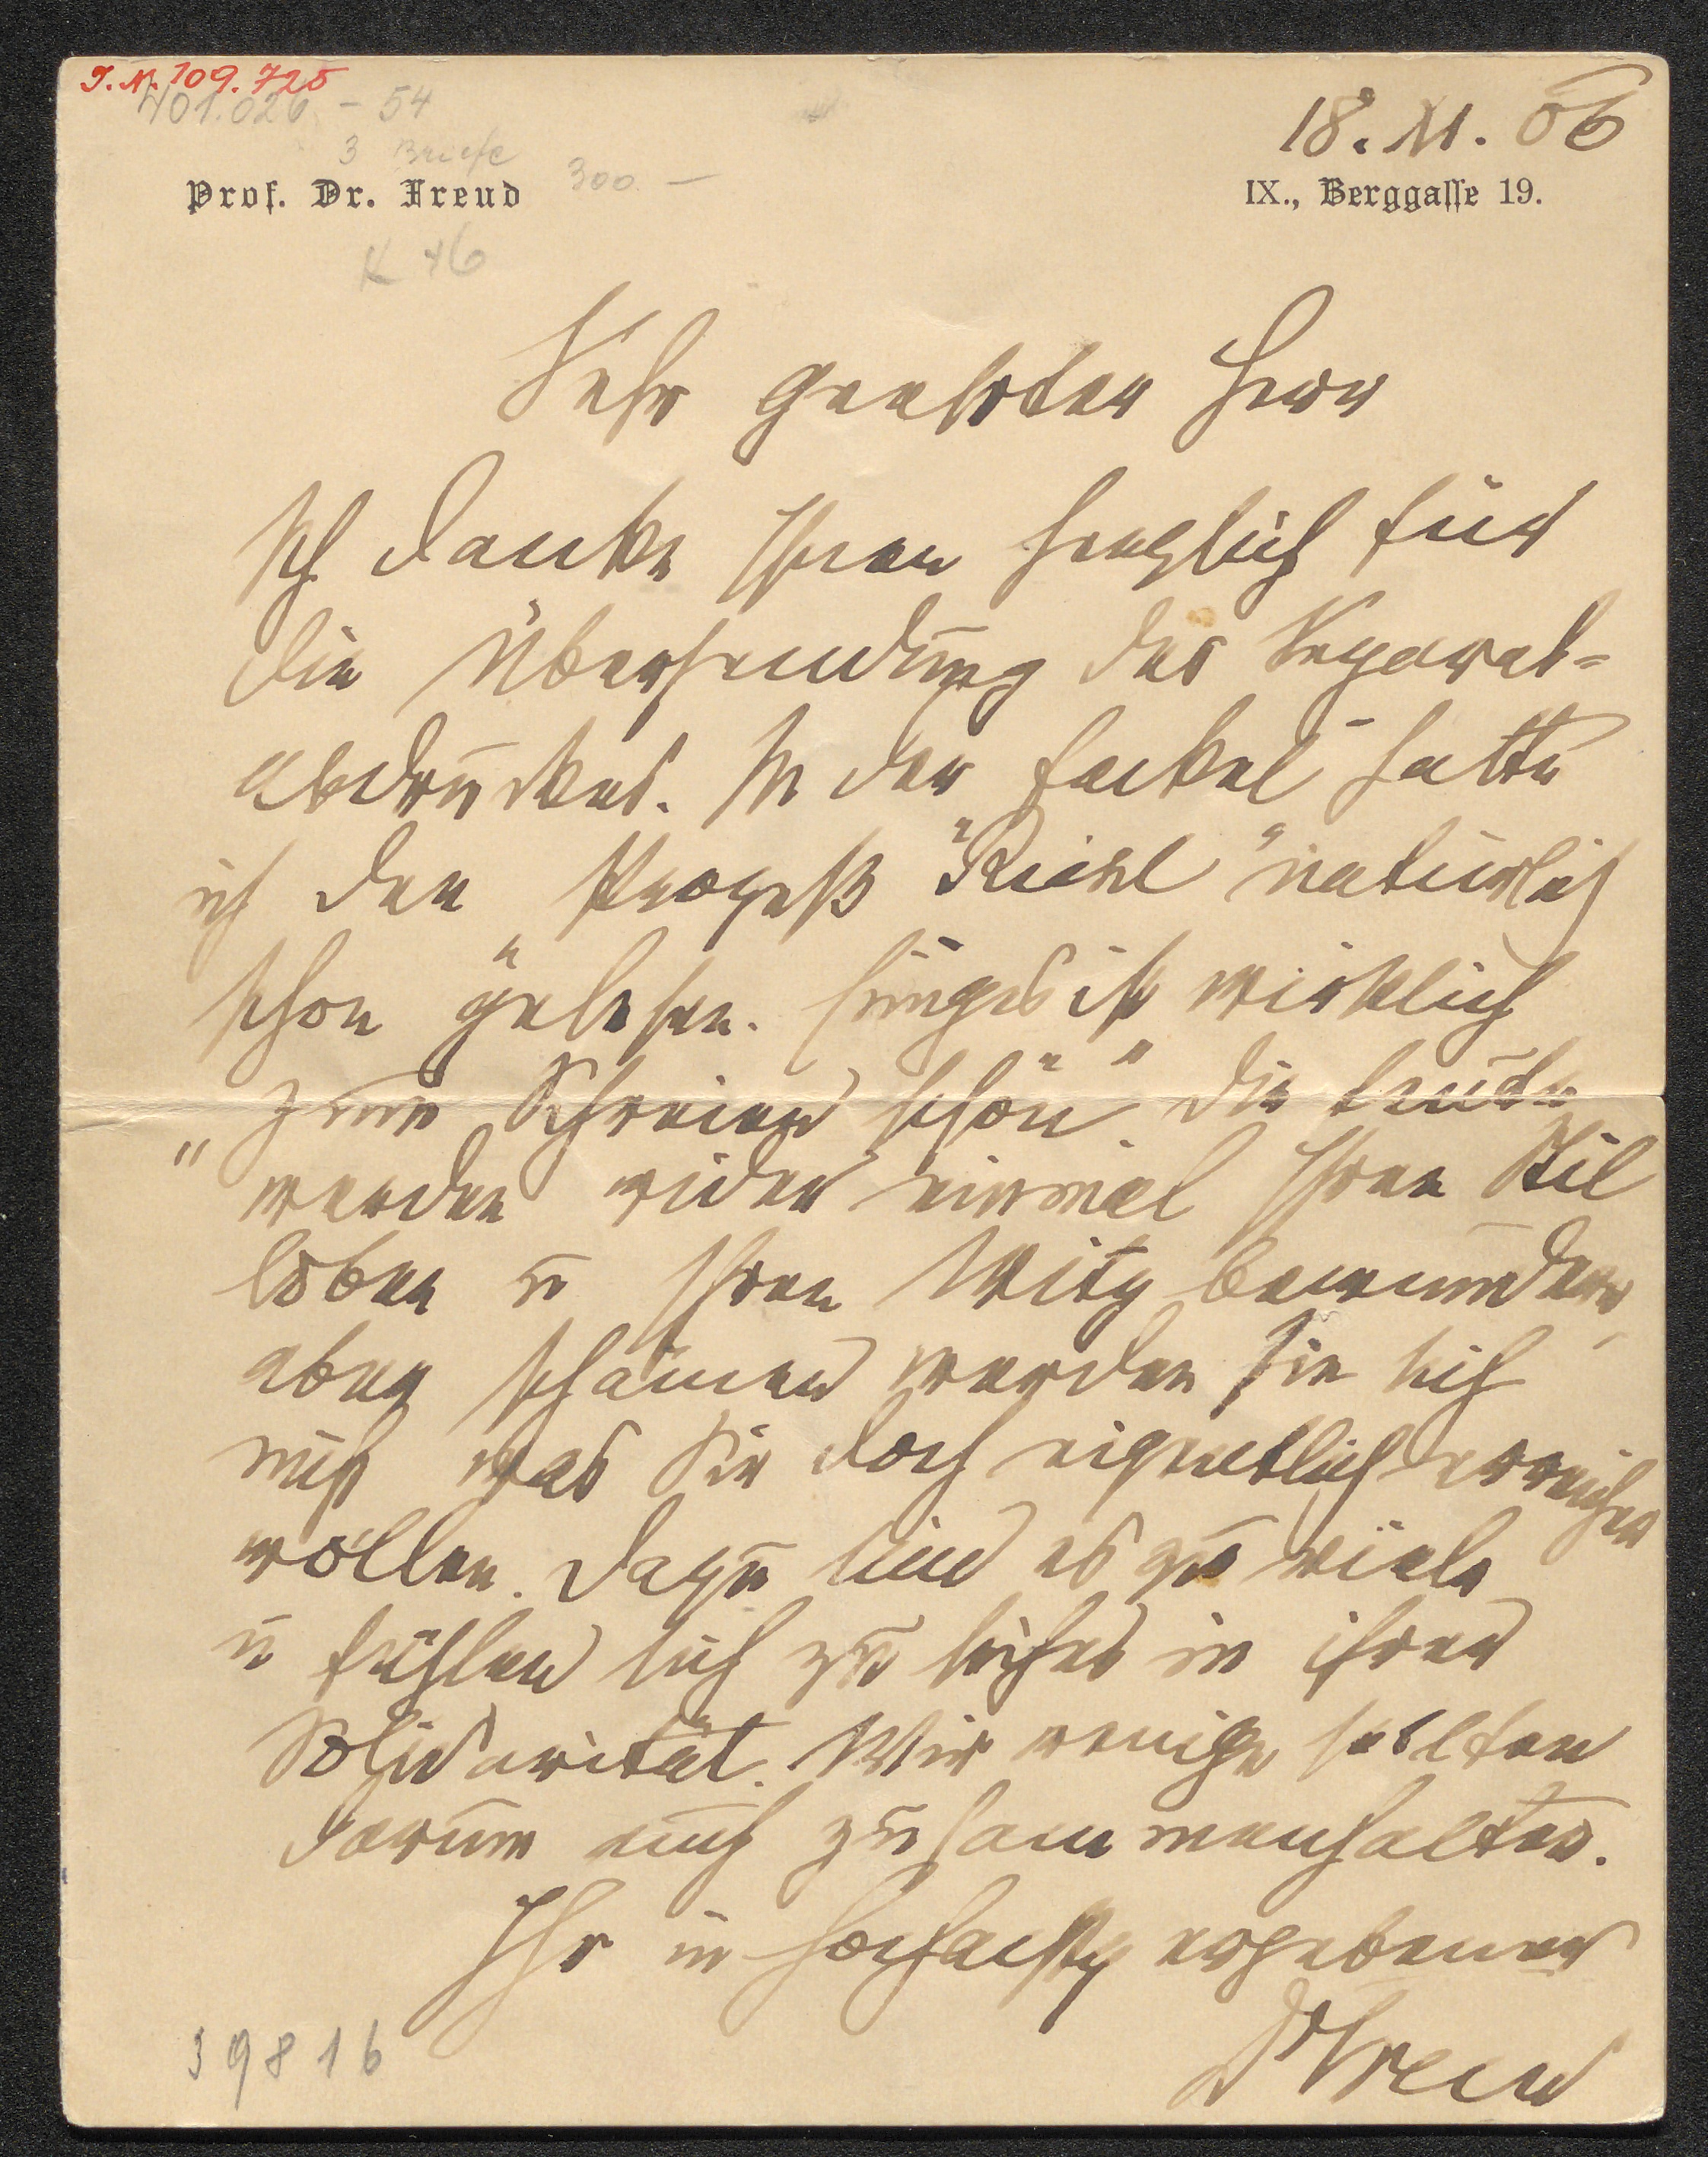 I.N. 109.725
401.026 - 54
3 Briefe
300.–
18. XI. 06
Prof. Dr. Freud
IX., Berggaſſe 19.
K 46
Sehr geehrter Herr
Ich danke Ihnen herzlich für
die Übersendung des Separat-
abdruckes. In der Fackel hatte
ich den Prozeß "Riehl" natürlich
schon gelesen. Einiges ist wirklich
"zum Schreien schön". Die Leute
werden wieder einmal Ihren Stil
loben u Ihren Witz bewundern,
aber schämen werden sie sich
nicht was Sie doch eigentlich erreichen
wollen. Dazu sind es zu viele
u fühlen sich zu sicher in ihrer
Solidarität. Wir wenige sollten
darum auch zusammenhalten.
Ihr in Hochachtg ergebener
Dr Freud
39816